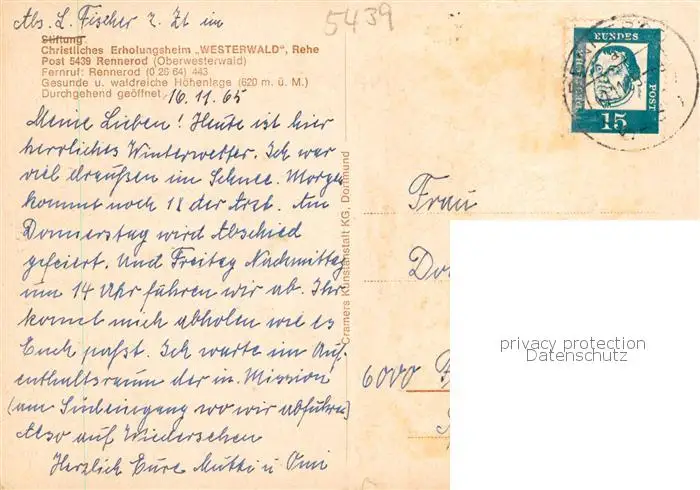 Abs. L. Fischer z. Zt im
5439
Stiftung
Christliches Erholungsheim „WESTERWALD", Rehe
Post 5439 Rennerod (Oberwesterwald)
Fernruf: Rennerod (0 26 64) 443
Gesunde u. waldreiche Höhenlage (620 m. ü. M.)
Durchgehend geöffnet
16.11.65
Meine Lieben! Heute ist hier
herrliches Winterwetter. Ich war
viel draußen im Schnee. Morgen
kommt noch der Arzt. Am
Donnerstag wird Abschied
gefeiert. Und Freitag Nachmittag
um 14 Uhr führen wir ab. Ihr
könnt mich abholen wie es
Euch paßt. Ich warte im Auf-
enthaltsraum der in. Mission
(am Südeingang wo wir abfuhren)
Also auf Wiedersehen
Herzlich Eure Mutti u Omi
Cramers Kunstanstalt KG, Dortmund
DEUTSCHE BUNDES POST
15
Frau
6000
privacy protection
Datenschutz